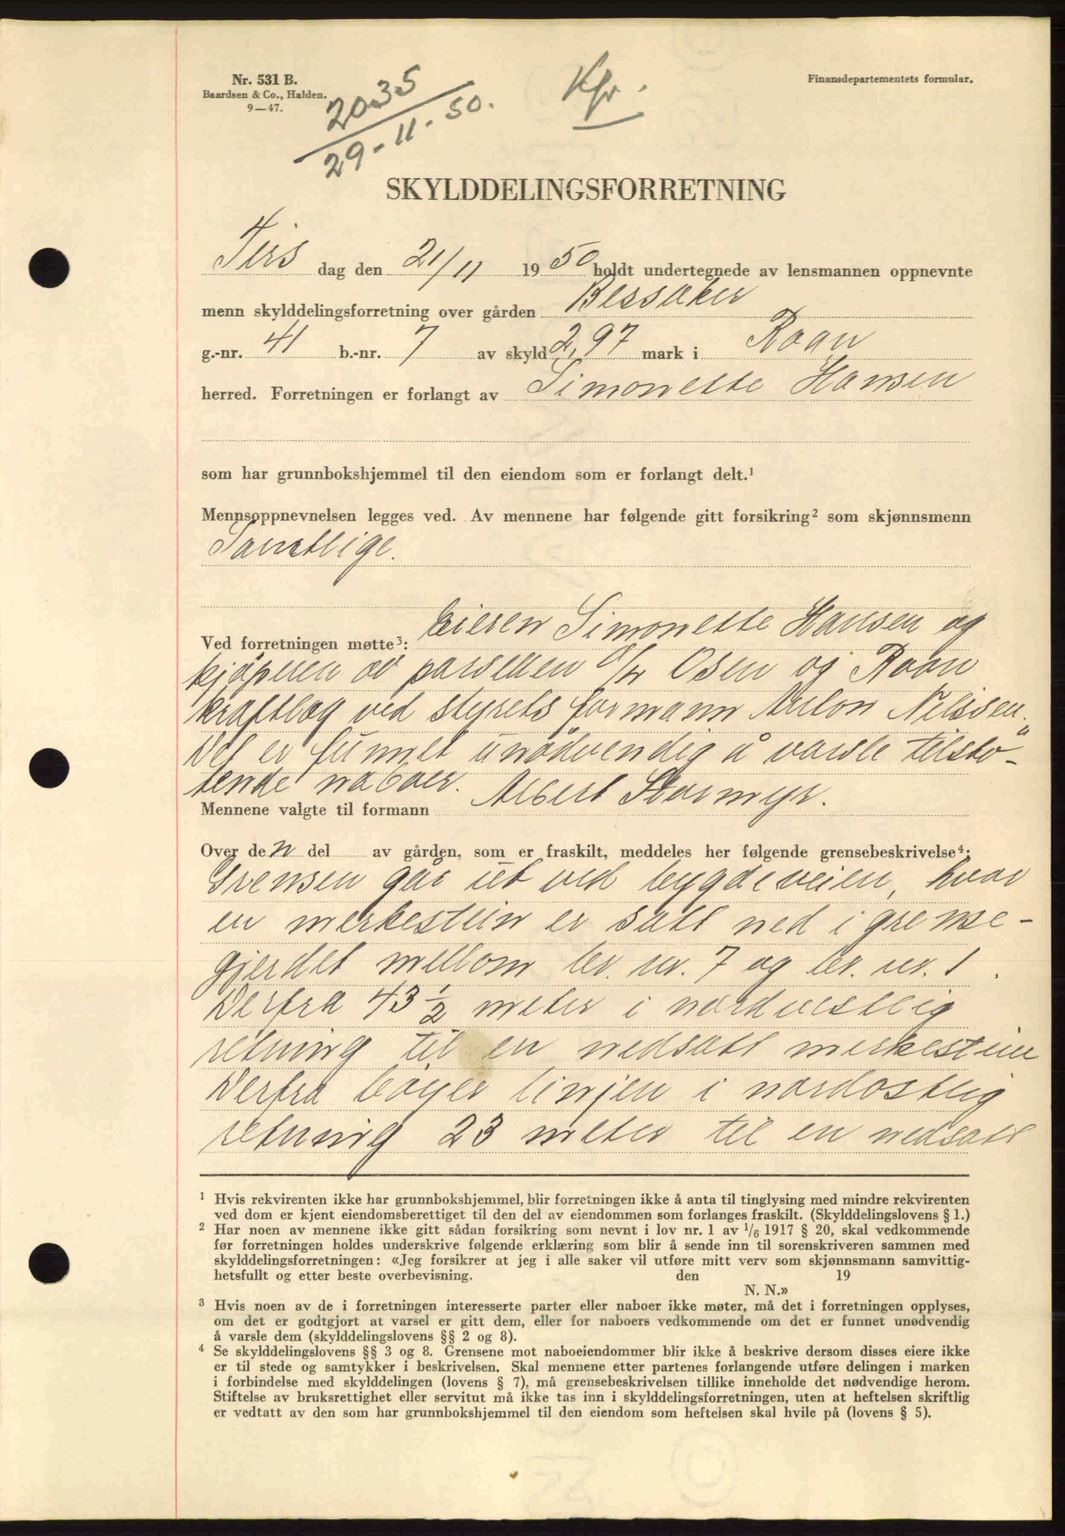 Nr. 531 B.
Baardsen & Co., Halden.
9—47.
Finansdepartementets formular.
2035
29-11-50.
Kfr.
SKYLDDELINGSFORRETNING
Tirs dag den 21/11 1950 holdt undertegnede av lensmannen oppnevnte
menn skylddelingsforretning over gården Bessaker
g.-nr. 41 b.-nr. 7 av skyld 2,97 mark i Roan
herred. Forretningen er forlangt av Simonette Hansen
som har grunnbokshjemmel til den eiendom som er forlangt delt.¹
Mennsoppnevnelsen legges ved. Av mennene har følgende gitt forsikring² som skjønnsmenn
Samtlige.
Ved forretningen møtte³: Eieren Simonette Hansen og
kjøperen av parsellen A/L Osen og Roan
kraftlag ved styrets formann Anton Nilssen.
Det er funnet unødvendig å varsle tilstø-
tende naboer.
Mennene valgte til formann Albert Stormyr.
Over den del av gården, som er fraskilt, meddeles her følgende grensebeskrivelse⁴:
Grensen går ut ved bygdeveien, hvor
en merkestein er satt ned i grense-
gjerdet mellom br. nr. 7 og br. nr. 1.
Derfra 43 ½ meter i nordvestlig
retning til en nedsatt merkestein
Derfra bøyer linjen i nordostlig
retning 23 meter til en nedsatt
¹ Hvis rekvirenten ikke har grunnbokshjemmel, blir forretningen ikke å anta til tinglysing med mindre rekvirenten
ved dom er kjent eiendomsberettiget til den del av eiendommen som forlanges fraskilt. (Skylddelingslovens § 1.)
² Har noen av mennene ikke gitt sådan forsikring som nevnt i lov nr. 1 av 1/6 1917 § 20, skal vedkommende
før forretningen holdes underskrive følgende erklæring som blir å sende inn til sorenskriveren sammen med
skylddelingsforretningen: «Jeg forsikrer at jeg i alle saker vil utføre mitt verv som skjønnsmann samvittig-
hetsfullt og etter beste overbevisning. den 19
N. N.»
³ Hvis noen av de i forretningen interesserte parter eller naboer ikke møter, må det i forretningen opplyses,
om det er godtgjort at varsel er gitt dem, eller for naboers vedkommende om det er funnet unødvendig
å varsle dem (skylddelingslovens §§ 2 og 8).
⁴ Se skylddelingslovens §§ 3 og 8. Grensene mot naboeiendommer blir ikke å beskrive dersom disses eiere ikke
er til stede og samtykker i beskrivelsen. Skal mennene etter partenes forlangende utføre delingen i marken
i forbindelse med skylddelingen (lovens § 7), må grensebeskrivelsen tillike inneholde det nødvendige herom.
Stiftelse av bruksrettighet eller servitut må ikke tas inn i skylddelingsforretningen, uten at heftelsen skriftlig
er vedtatt av den som har grunnbokshjemmel til den eiendom som heftelsen skal hvile på (lovens § 5).